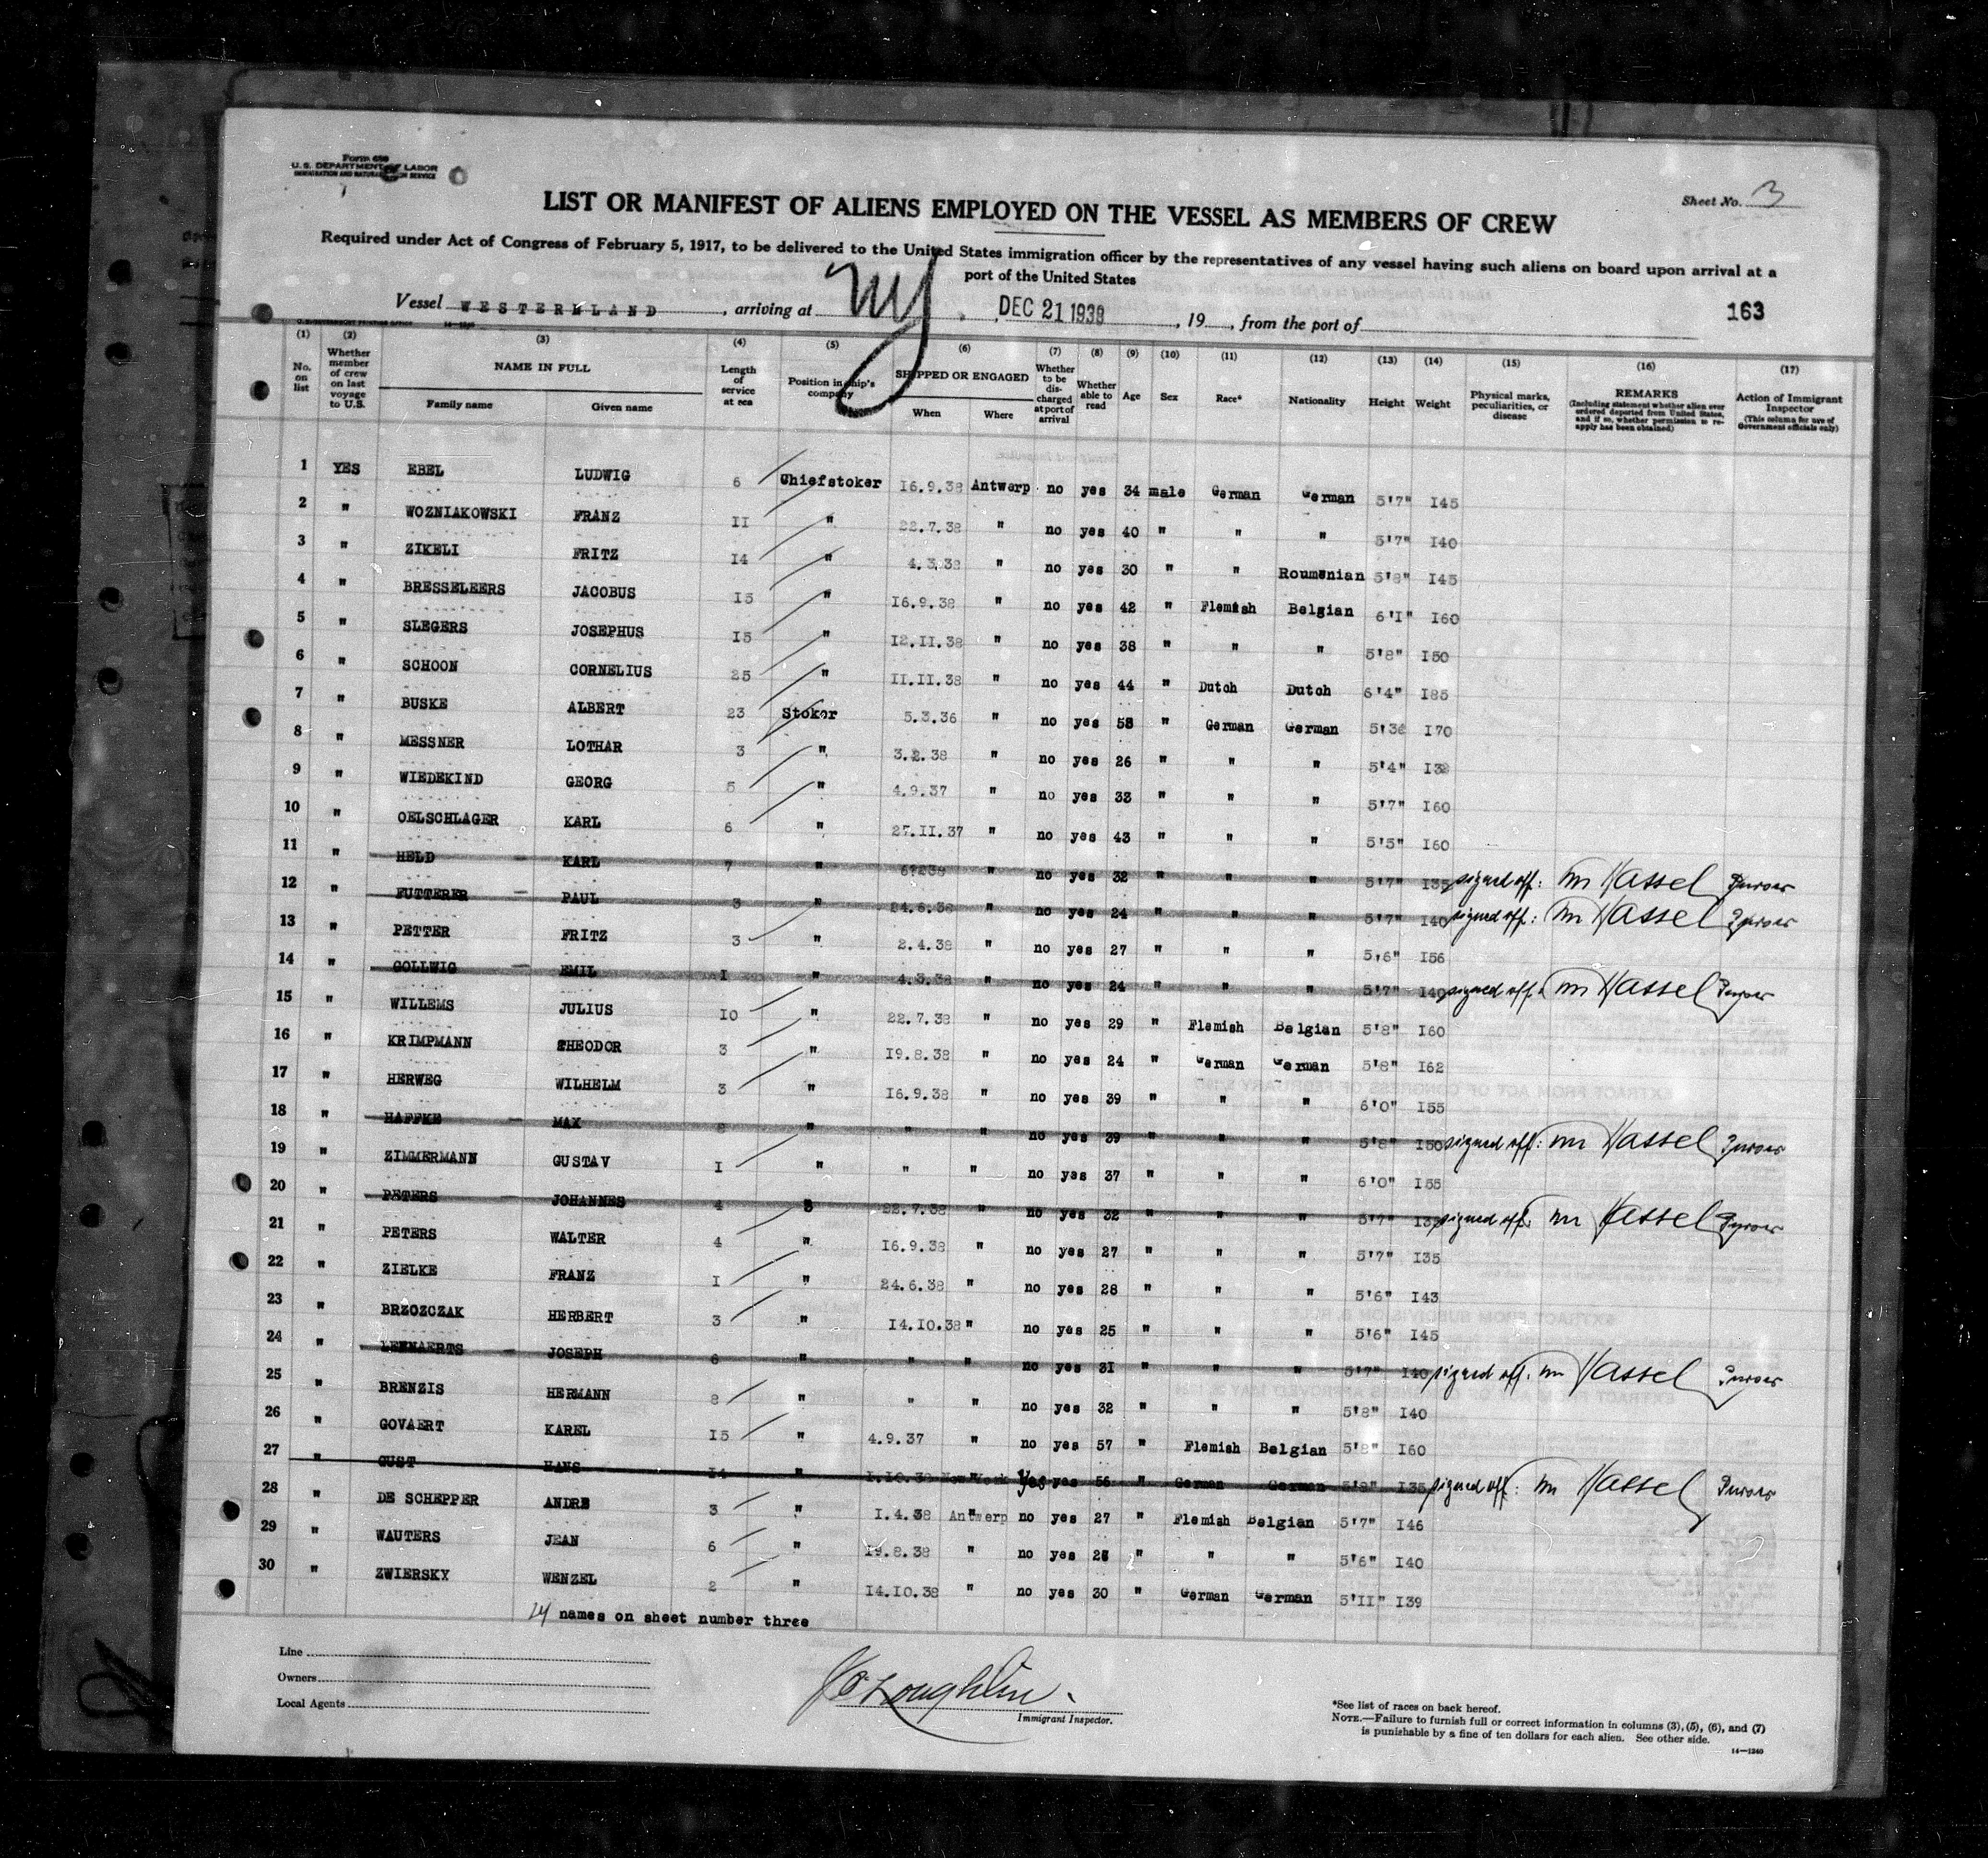 Form 680
U. S. DEPARTMENT OF LABOR
IMMIGRATION AND NATURALIZATION SERVICE
Sheet No. 3
LIST OR MANIFEST OF ALIENS EMPLOYED ON THE VESSEL AS MEMBERS OF CREW
Required under Act of Congress of February 5, 1917, to be delivered to the United States immigration officer by the representatives of any vessel having such aliens on board upon arrival at a
port of the United States
Vessel WESTERNLAND, arriving at NY, DEC 21 1938, 19, from the port of
163
(1) (2) (3) (4) (5) (6) (7) (8) (9) (10) (11) (12) (13) (14) (15) (16) (17)
No. on list
Whether member of crew on last voyage to U.S.
NAME IN FULL
Family name Given name
Length of service at sea
Position in ship's company
SHIPPED OR ENGAGED
When Where
Whether to be discharged at port of arrival
Whether able to read
Age
Sex
Race*
Nationality
Height
Weight
Physical marks, peculiarities, or disease
REMARKS
(Including statement whether alien ever ordered deported from United States, and if so, whether permission to reapply has been obtained)
Action of Immigrant Inspector
(This column for use of Government officials only)
1 YES EBEL LUDWIG 6 Chiefstoker 16.9.38 Antwerp no yes 34 male German German 5'7" I45
2 " WOZNIAKOWSKI FRANZ II " 22.7.38 " no yes 40 " " " 5'7" I40
3 " ZIKELI FRITZ I4 " 4.3.38 " no yes 30 " " Roumenian 5'8" I45
4 " BRESSELEERS JACOBUS I5 " I6.9.38 " no yes 42 " Flemish Belgian 6'I" I60
5 " SLEGERS JOSEPHUS I5 " I2.II.38 " no yes 38 " " " 5'8" I50
6 " SCHOON CORNELIUS 25 " II.II.38 " no yes 44 " Dutch Dutch 6'4" I85
7 " BUSKE ALBERT 23 Stoker 5.3.36 " no yes 58 " German German I70
8 " MESSNER LOTHAR 3 " 3.2.38 " no yes 26 " " " 5'4"
9 " WIEDEKIND GEORG 5 " 4.9.37 " no yes 33 " " " 5'7" I60
10 " OELSCHLAGER KARL 6 " .II.37 " no yes 43 " " " 5'5" I60
11 " HELD - KARL 7 " " no yes 32 " " " 5'7" I35 signed off: Hassel Purser
12 " FUTTERER - PAUL 3 " 24.6.38 " no yes 24 " " " 5'7" I40 signed off: Hassel Purser
13 " PETTER FRITZ 3 " 2.4.38 " no yes 27 " " " 5'6" I56
14 " GOLLWIG - EMIL I " 4.3.38 " no yes 24 " " " 5'7" I40 signed off: Hassel Purser
15 " WILLEMS JULIUS IO " 22.7.38 " no yes 29 " Flemish Belgian 5'8" I60
16 " KRIMPMANN THEODOR 3 " I9.8.38 " no yes 24 " German German 5'8" I62
17 " HERWEG WILHELM 3 " I6.9.38 " no yes 39 " " " 6'0" I55
18 " HAFFKE - MAX 8 " " " no yes 39 " " " 5'8" I50 signed off: Hassel Purser
19 " ZIMMERMANN GUSTAV I " " " no yes 37 " " " 6'0" I55
20 " PETERS - JOHANNES 4 22.7.38 " no yes 32 " " " 5'7" signed off: Hassel Purser
21 " PETERS WALTER 4 " I6.9.38 " no yes 27 " " " 5'7" I35
22 " ZIELKE FRANZ I " 24.6.38 " no yes 28 " " " 5'6" I43
23 " BRZOZCZAK HERBERT 3 " I4.IO.38 " no yes 25 " " " 5'6" I45
24 " LENNAERTS - JOSEPH 6 " " " no yes 31 " " " 5'7" I40 signed off: Hassel Purser
25 " BRENZIS HERMANN 8 " " " no yes 32 " " " 5'8" I40
26 " GOVAERT KAREL I5 " 4.9.37 " no yes 57 " Flemish Belgian 5'8" I60
27 " GUST HANS I4 " I.IO.38 New York Yes yes 56 " German German 5'8" I35 signed off: Hassel Purser
28 " DE SCHEPPER ANDRE 3 " I.4.38 Antwerp no yes 27 " Flemish Belgian 5'7" I46
29 " WAUTERS JEAN 6 " I9.8.38 " no yes " " " 5'6" I40
30 " ZWIERSKY WENZEL 2 " I4.IO.38 " no yes 30 " German German 5'II" I39
24 names on sheet number three
Line
Owners
Local Agents
Immigrant Inspector.
*See list of races on back hereof.
NOTE.—Failure to furnish full or correct information in columns (3), (5), (6), and (7)
is punishable by a fine of ten dollars for each alien. See other side.
14—1240